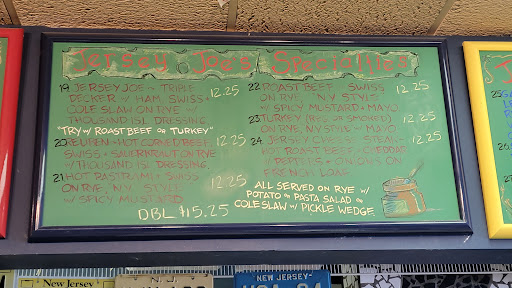 Jersey Joe's Specialties
19 JERSEY JOE ~ TRIPLE
DECKER ~ HAM, SWISS +
COLE SLAW ON RYE w/
THOUSAND ISL. DRESSING
12.25
"TRY w/ ROAST BEEF OR TURKEY"
20 REUBEN - HOT CORNED BEEF
SWISS + SAUERKRAUT ON RYE
w/ THOUSAND ISL. DRESSING
12.25
21 HOT PASTRAMI + SWISS
ON RYE, N.Y. STYLE
w/ SPICY MUSTARD
12.25
DBL $15.25
22 ROAST BEEF SWISS
ON RYE N.Y. STYLE
SPICY MUSTARD + MAYO
12.25
23 TURKEY (REG or SMOKED)
ON RYE, NY STYLE w/ MAYO
12.25
24 JERSEY CHEESE STEAK
HOT ROAST BEEF CHEDDAR
w/ PEPPERS + ONIONS ON
FRENCH LOAF
12.25
ALL SERVED ON RYE w/
POTATO or PASTA SALAD or
COLESLAW w/ PICKLE WEDGE
New Jersey
NEW JERSEY